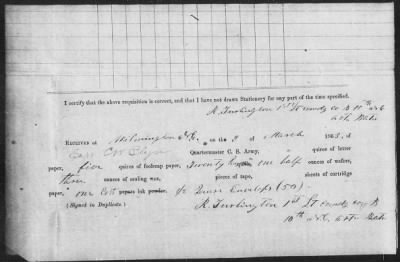 I certify that the above requisition is correct, and that I have not drawn Stationery for any part of the time specified.
R. Turlington 1st Lt comdg co B 10th
RECEIVED at Wilmington N.C. on the 2 of March 1863, of
Capt Quartermaster C. S. Army, quires of letter
paper, five quires of foolscap paper, Twenty one half ounces of wafers,
three ounces of sealing wax, pieces of tape, sheets of cartridge
paper, one Bott papers ink powder. 1/2 Quire Envelops (50).
(Signed in Duplicate.) R. Turlington 1st Lt comdg co B
10th